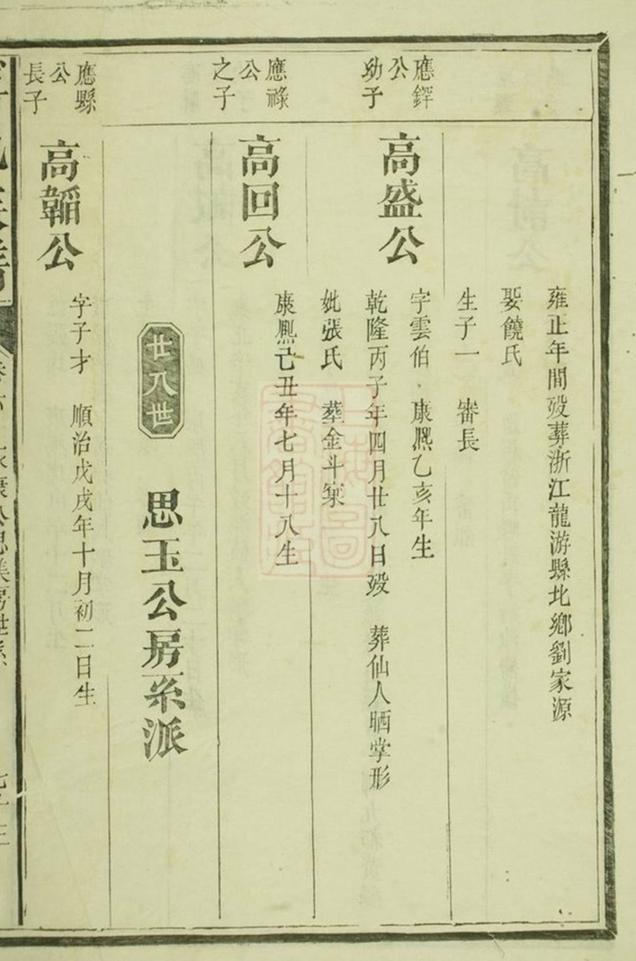 雍正年間歿葬浙江龍游縣北鄉劉家源
娶饒氏
生子一 審長
應鐸公幼子
高盛公
字雲伯 康熙乙亥年生
乾隆丙子年四月廿八日歿 葬仙人晒掌形
妣張氏 葬金斗窠
應祿公之子
高回公
康熙己丑年七月十八生
廿八世
思玉公房系派
應縣公長子
高韜公
字子才 順治戊戌年十月初二日生